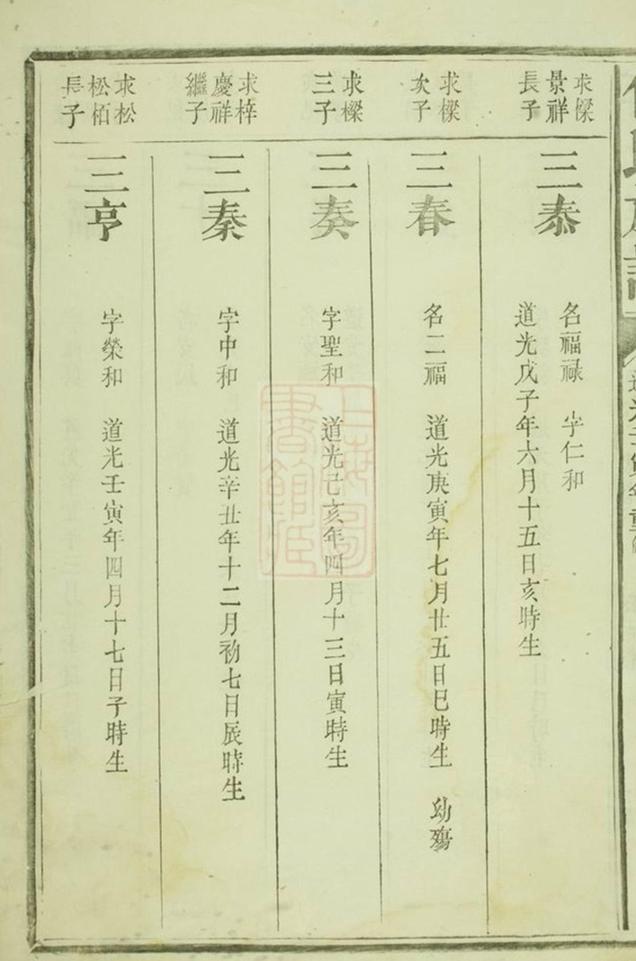 求樑
景祥
長子
三泰
名福祿 字仁和
道光戊子年六月十五日亥時生
求樑
次子
三春
名二福 道光庚寅年七月廿五日巳時生 幼殤
求樑
三子
三奏
字聖和 道光己亥年四月十三日寅時生
求梓
慶祥
繼子
三秦
字中和 道光辛丑年十二月初七日辰時生
求松
松栢
長子
三亨
字榮和 道光壬寅年四月十七日子時生
上海圖
書館藏